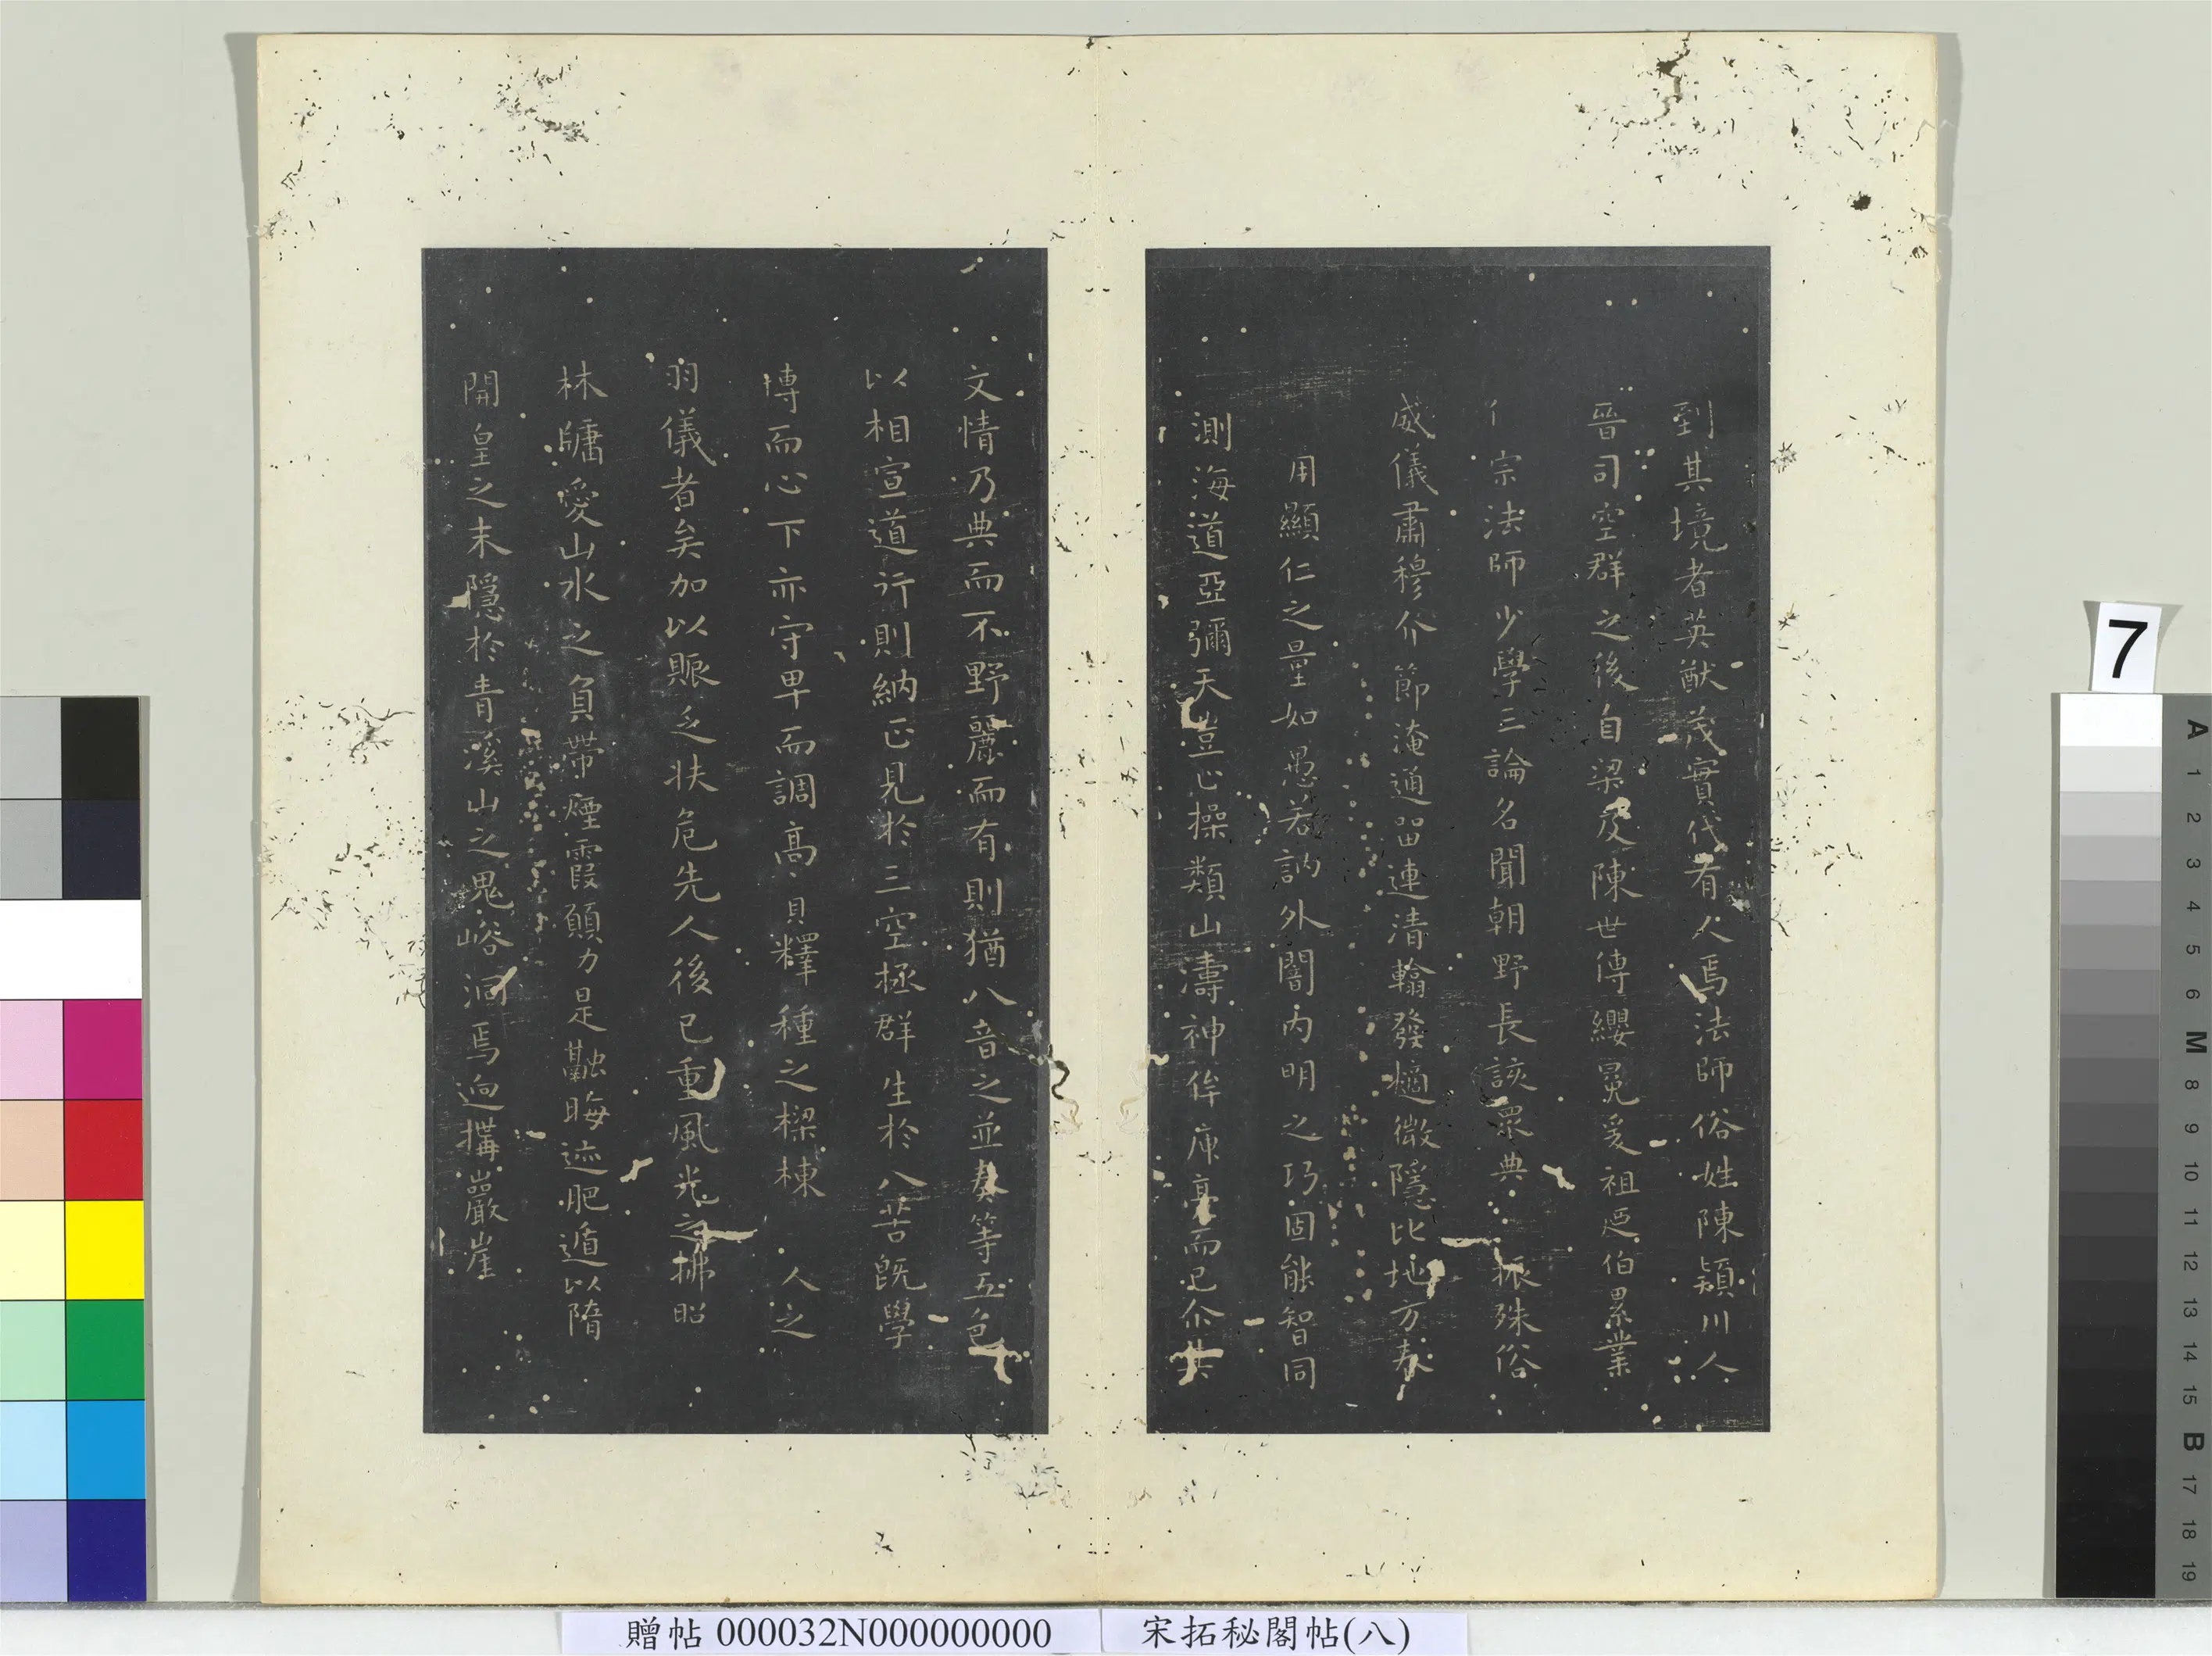 到其境者英猷茂實代有人焉法師俗姓陳潁川人
晉司空群之後自梁及陳世傳纓冕爰祖逮伯累業
宗法師少學三論名聞朝野長該眾典振殊俗
威儀肅穆介節淹通留連清翰發擿微隱比地方春
用顯仁之量如愚若訥外闇內明之巧固能智同
測海道亞彌天豈止操類山濤神侔庾亮而已余共
文情乃典而不野麗而有則猶八音之並奏等五色
以相宣道行則納正見於三空拯群生於八苦既學
博而心下亦守卑而調高實釋種之樑棟人之
羽儀者矣加以賑乏扶危先人後己重風光之拂照
林牗愛山水之負帶煙霞願力是融晦迹肥遁以隋
開皇之末隱於青溪山之鬼峪洞焉逈搆巖崖
7
A
1
2
3
4
5
6
M
8
9
10
11
12
13
14
15
B
17
18
19
贈帖 000032N000000000
宋拓秘閣帖(八)